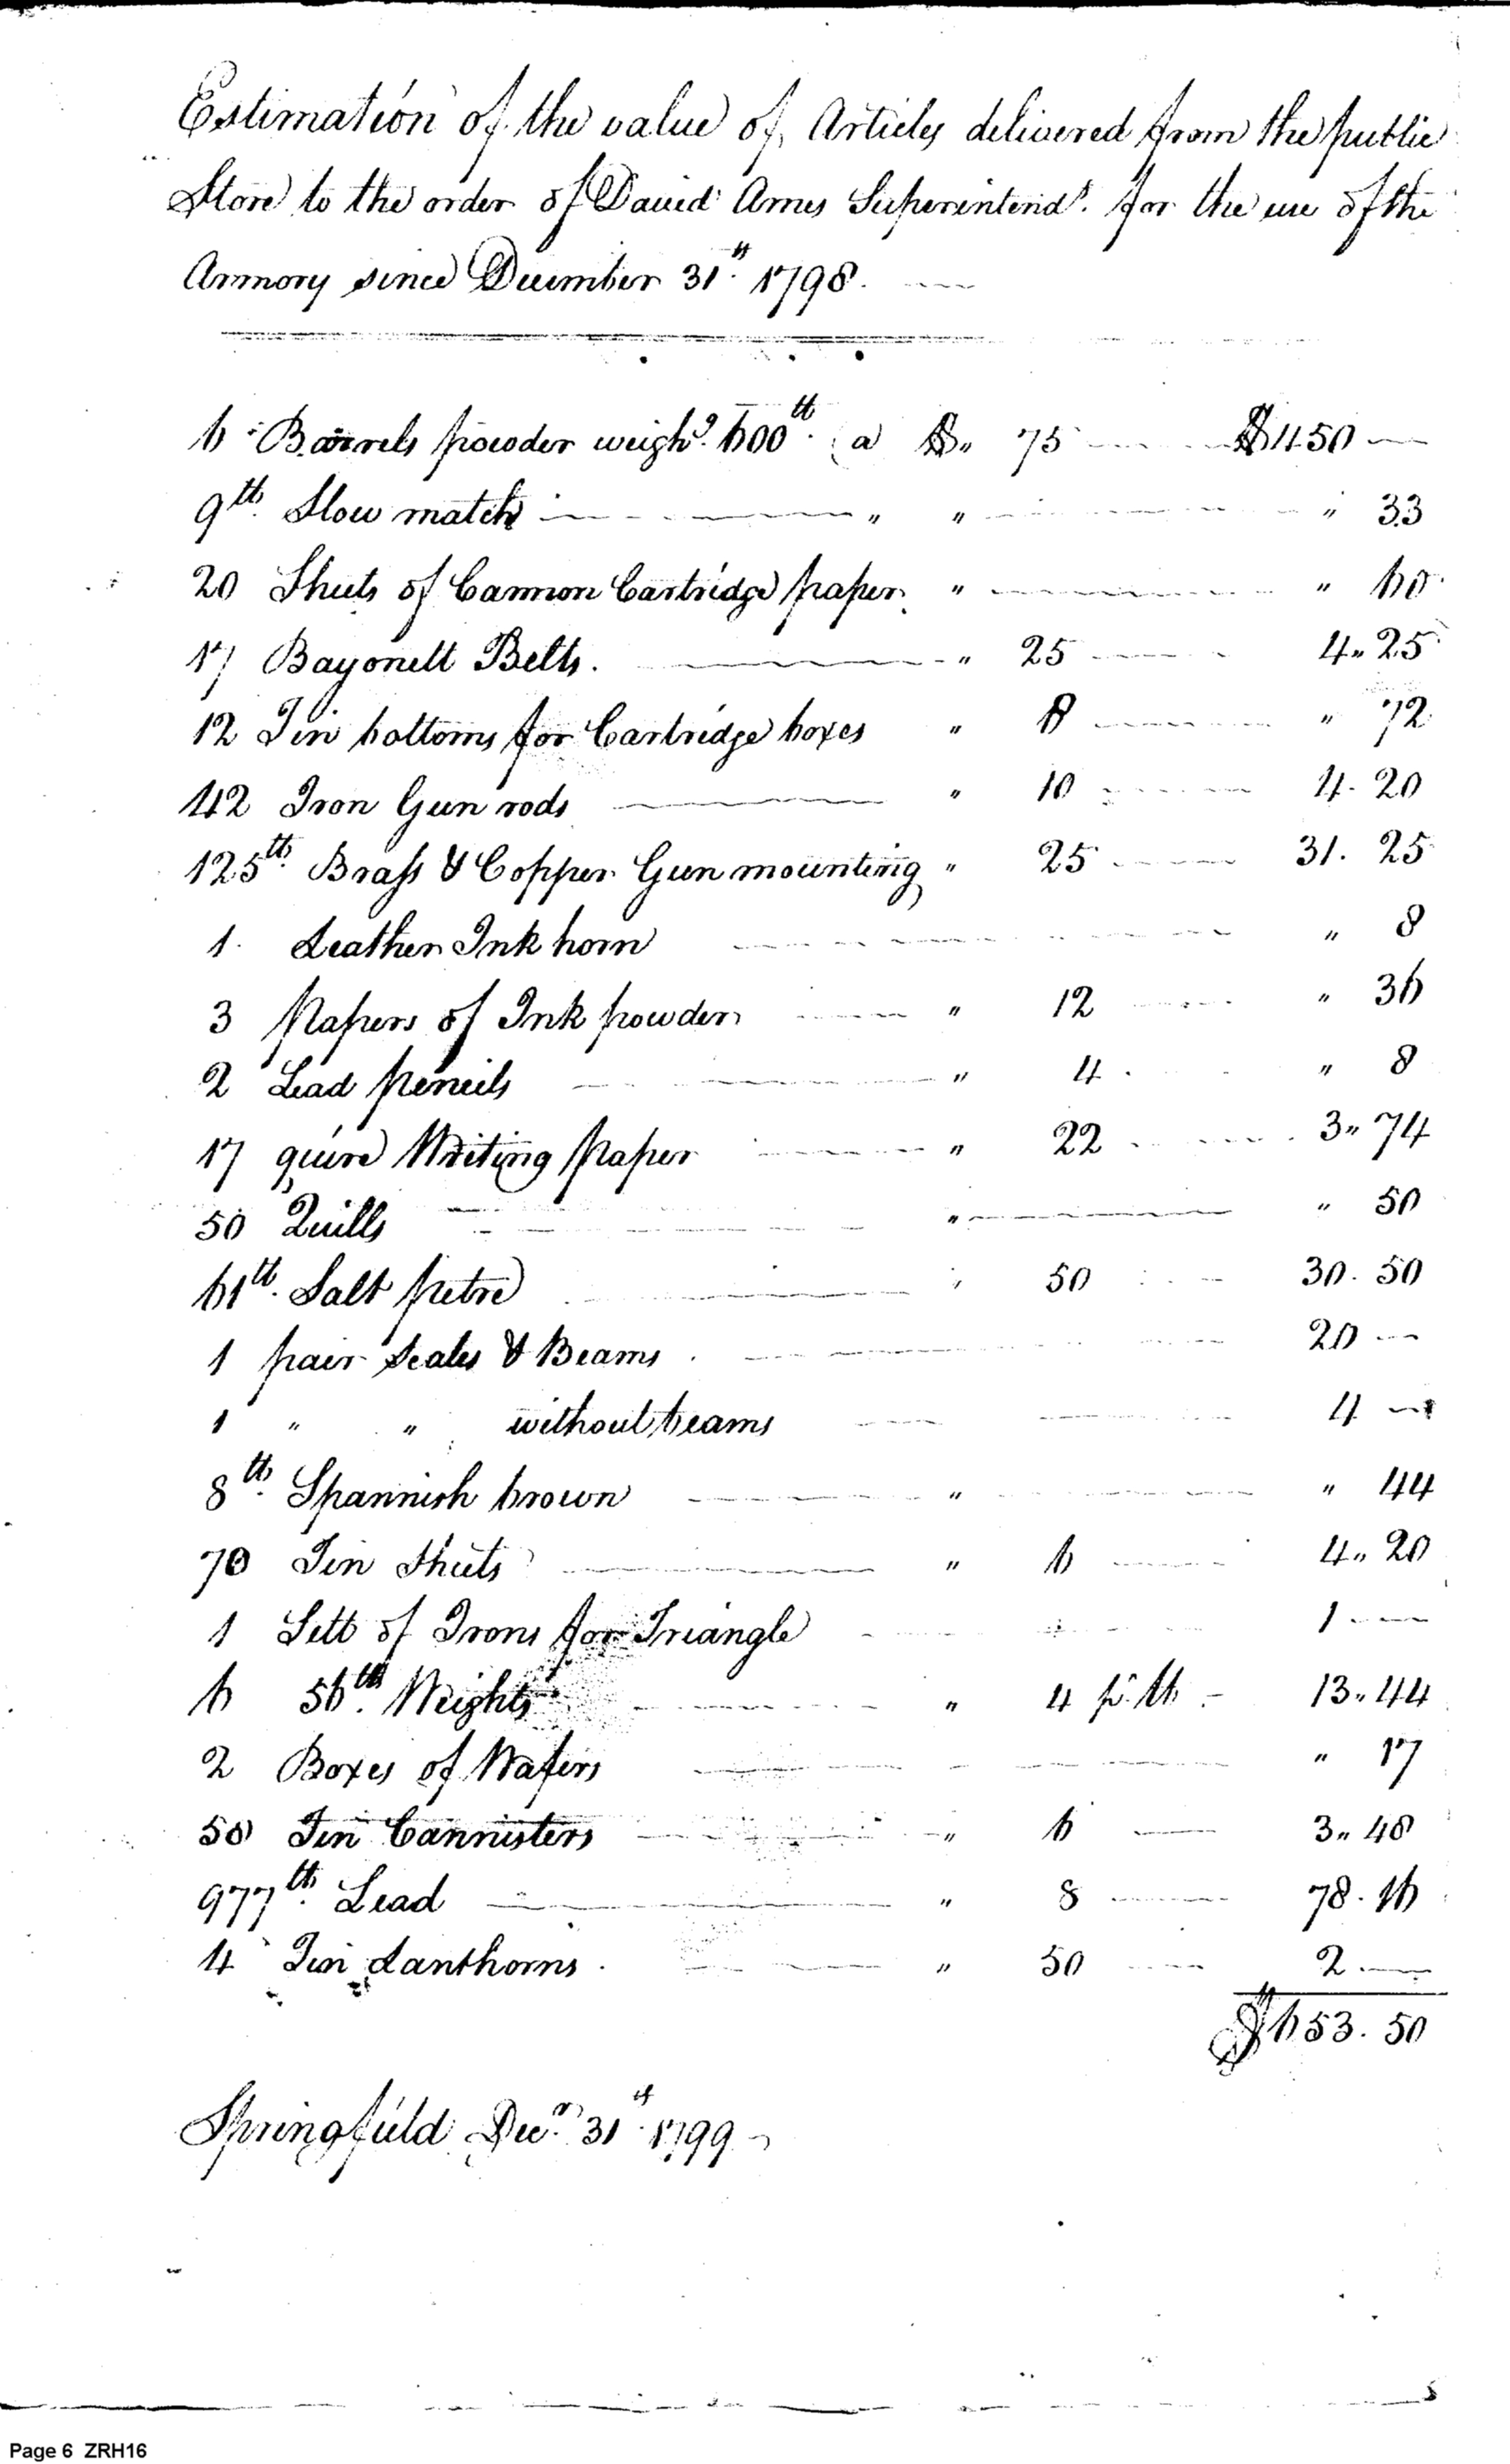 Estimation of the value of Articles delivered from the public
Store to the order of David Ames Superintendt. for the use of the
Armory since December 31st. 1798.
6 Barrels powder weighg. 600 lb. a $ " 75 $450 —
9 lb. Slow match " " " 33
20 Sheets of Cannon Cartridge paper " " 60
17 Bayonett Belts. " 25 4 " 25
12 Tin bottoms for Cartridge boxes " 6 " 72
42 Iron Gun rods " 10 4. 20
125 lb. Brass & Copper Gun mounting " 25 31. 25
1 Leather Ink horn " 8
3 Papers of Ink powder " 12 " 36
2 Lead pencils " 4 " 8
17 quire Writing Paper " 22 3 " 74
50 Quills " " 50
61 lb. Salt petre " 50 30. 50
1 pair Scales & Beams 20 —
1 " " without beams 4 —
8 lb. Spannish brown " " 44
70 Tin Sheets " 6 4 " 20
1 Sett of Irons for Triangle 1 —
6 56 lb. Weights " 4 pr. lb 13 " 44
2 Boxes of Wafers " 17
58 Tin Cannisters " 6 3 " 48
977 lb. Lead " 8 78. 16
4 Tin Lanthorns " 50 2 —
$653. 50
Springfield Decr. 31st. 1799
Page 6 ZRH16